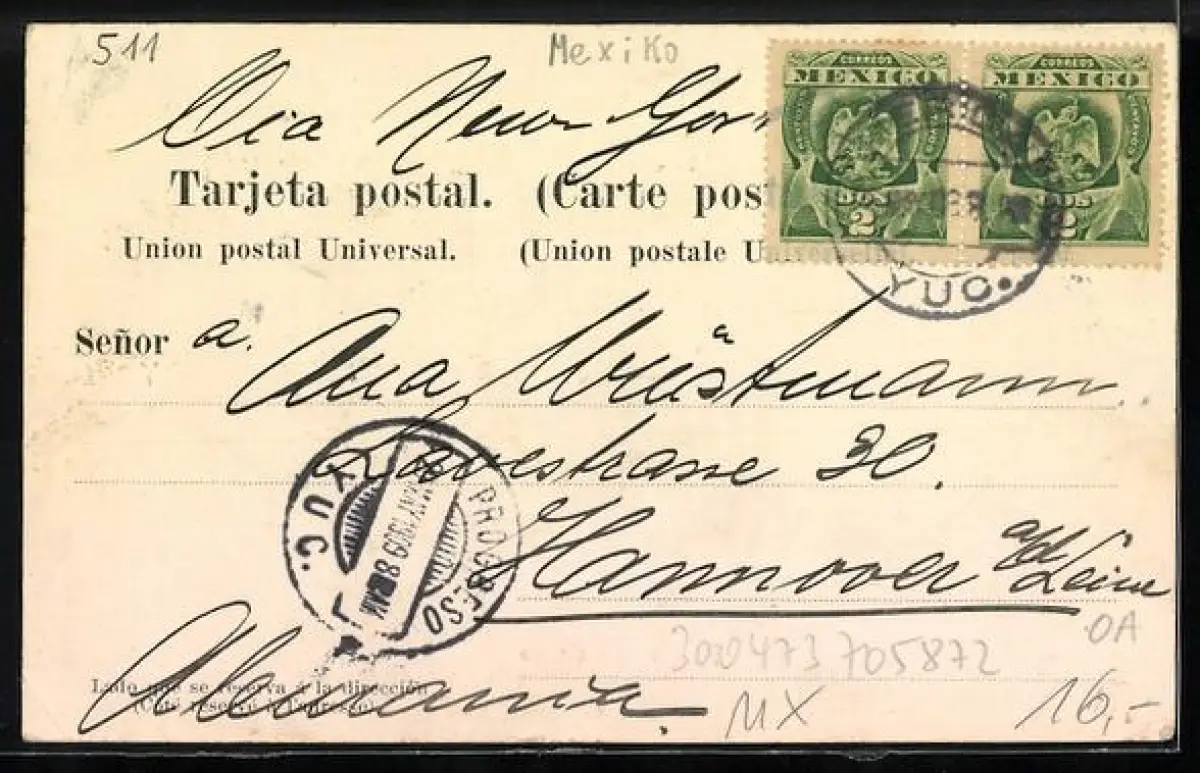 511
Mexiko
Via New York
CORREOS CORREOS
MEXICO MEXICO
DOS DOS
2 2
Tarjeta postal. (Carte post
Union postal Universal. (Union postale Universelle)
YUC.
Señor a.
Ana Wüstmann
Lavesstrasse 30.
Hannover a/d Leine
YUC. PROGRESO
1909
Alemania.
Lado que se reserva á la dirección
(Coté réservé à l'adresse)
3000473705872
OA
MX
16,-